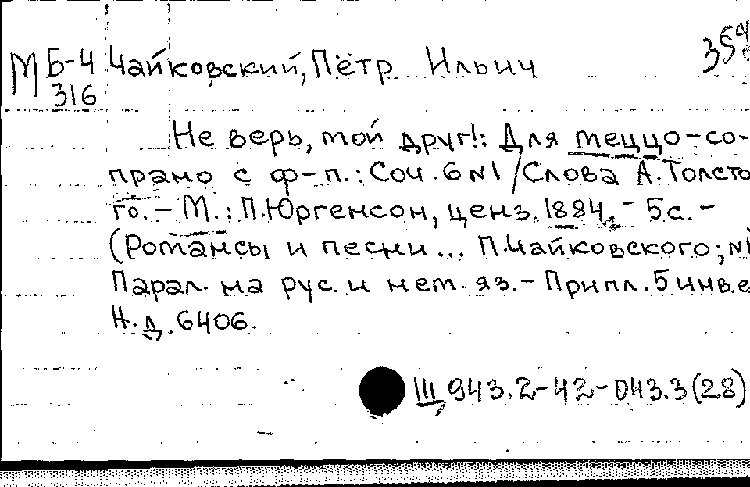 М Б-4 Чайковский, Пётр Ильич
316
Не верь, мой друг!: Для меццо-со-
прамо с ф-п.: Соч. 6 N1 / Слова А. Толсто
го. - М.: П. Юргенсон, ценз. 1884. - 5 с. -
(Романсы и песни... П. Чайковского; N1
Парал. на рус. и нем. яз. - Припл. 5 инв. е
Н. д. 6406.
Ш 943.2-42-043.3(28)